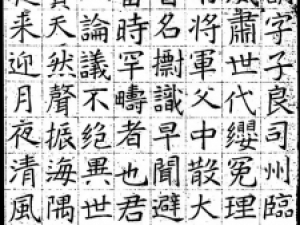 字子良司州臨
風肅世代纓冕理
將軍父中散大
名識早聞避
時罕疇者也君
論議不絕異世
天然聲振海隅
來迎月夜清風